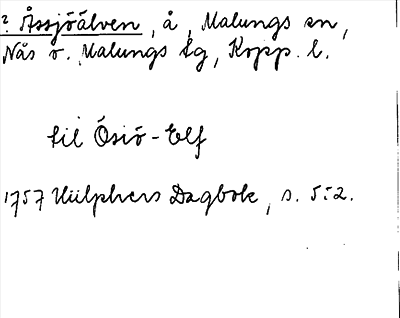 ? Åssjöälven, å, Malungs sn,
Nås o. Malungs tg, Kopp. l.
til Ösiö-Elf
1757 Hülphers Dagbok, s. 52.